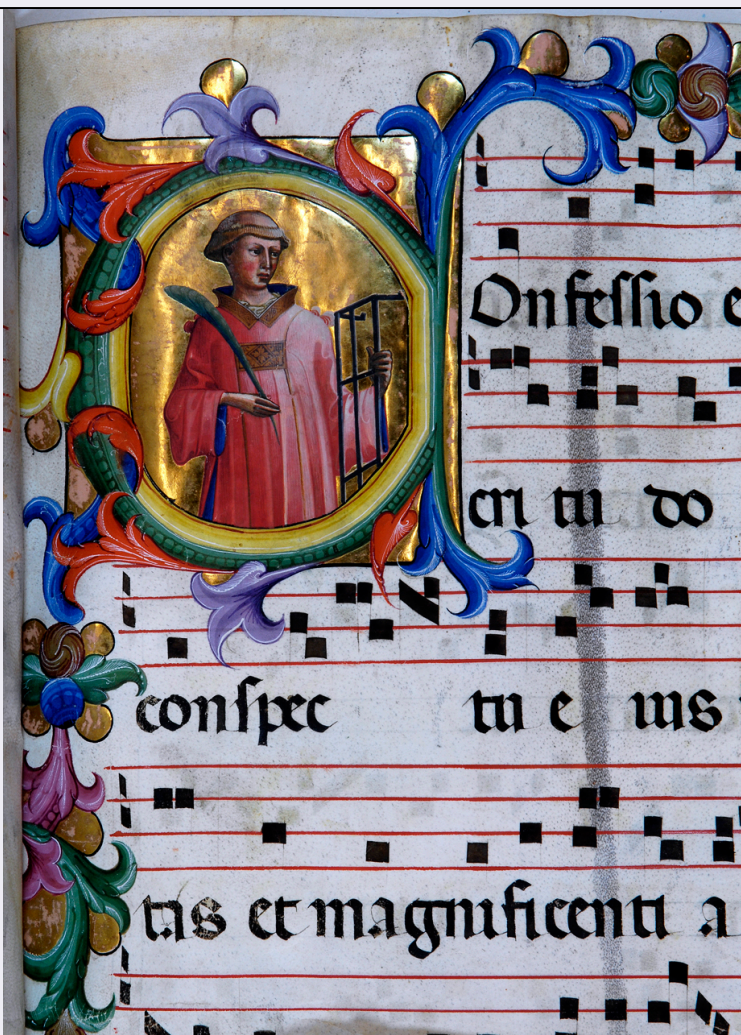 COnfessio e
cri tu do
conspec tu e ius
tas et magnificenti a